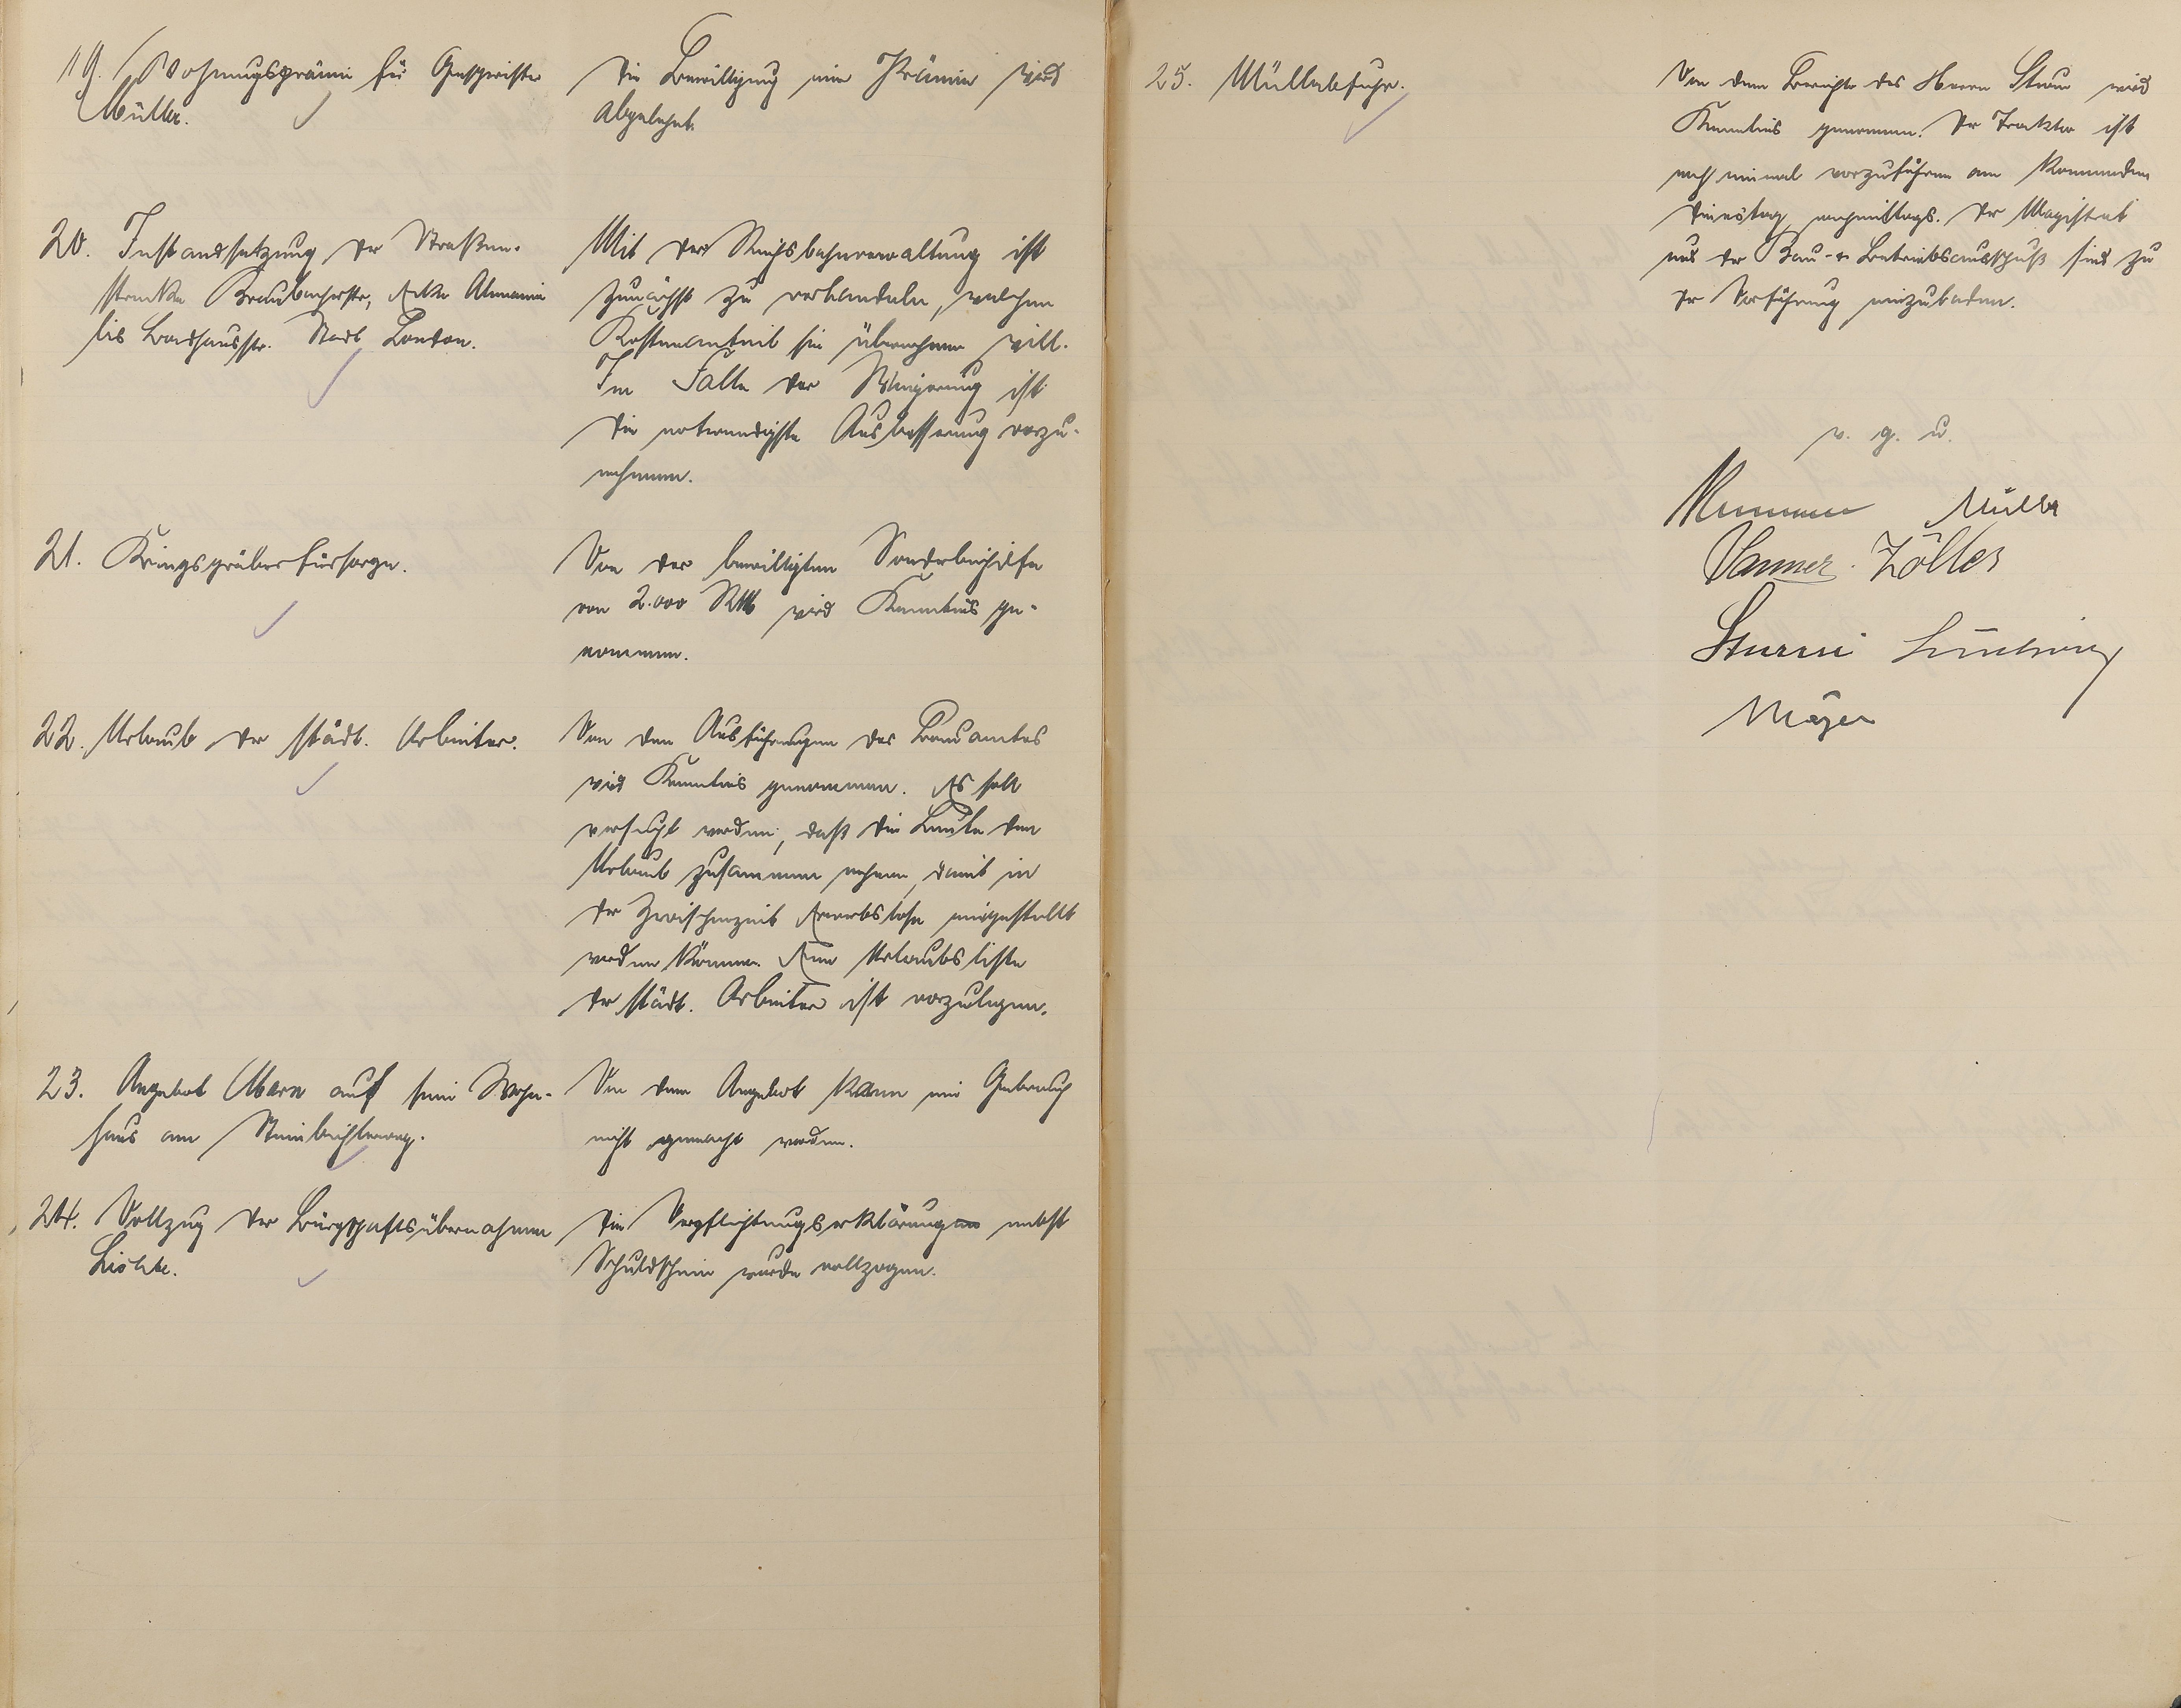 19. Wohnungsprämie für Geschwister
Müller.
Die Bewilligung einer Prämie wird
abgelehnt.
20. Instandsetzung der Straßen-
strecke Braubacherstr., Ecke Alemannia
bis Badhausstr. Stadt London.
Mit der Reichsbahnverwaltung ist
zunächst zu verhandeln, welchen
Kostenanteil sie übernehmen will.
Im Falle der Weigerung ist
die notwendigste Ausbesserung vorzu-
nehmen.
21. Kriegsgräberfürsorge.
Von der bewilligten Sonderbeihilfe
von 2.000 RM wird Kenntnis ge-
nommen.
22. Urlaub der städt. Arbeiter.
Von den Ausführungen des Bauamtes
wird Kenntnis genommen. Es soll
versucht werden, daß die Leute den
Urlaub zusammen nehmen, damit in
der Zwischenzeit Erwerbslose eingestellt
werden können. Eine Urlaubsliste
der städt. Arbeiter ist vorzulegen.
23. Angebot auf sein Wohn-
haus am
Von dem Angebot kann ein Gebrauch
nicht gemacht werden.
24. Vollzug der Bürgschaftsübernahmen
Lischke.
Die Verpflichtungserklärung nebst
Schuldschein wurde vollzogen.
25. Müllabfuhr.
Von dem Berichte des Herrn Sturm wird
Kenntnis genommen. Der Traktor ist
noch einmal vorzuführen am kommenden
Dienstag nachmittags. Der Magistrat
und der Bau- u. Betriebsausschuß sind zu
der Vorführung einzuladen.
v. g. u.
Müller
Zöller
Sturm